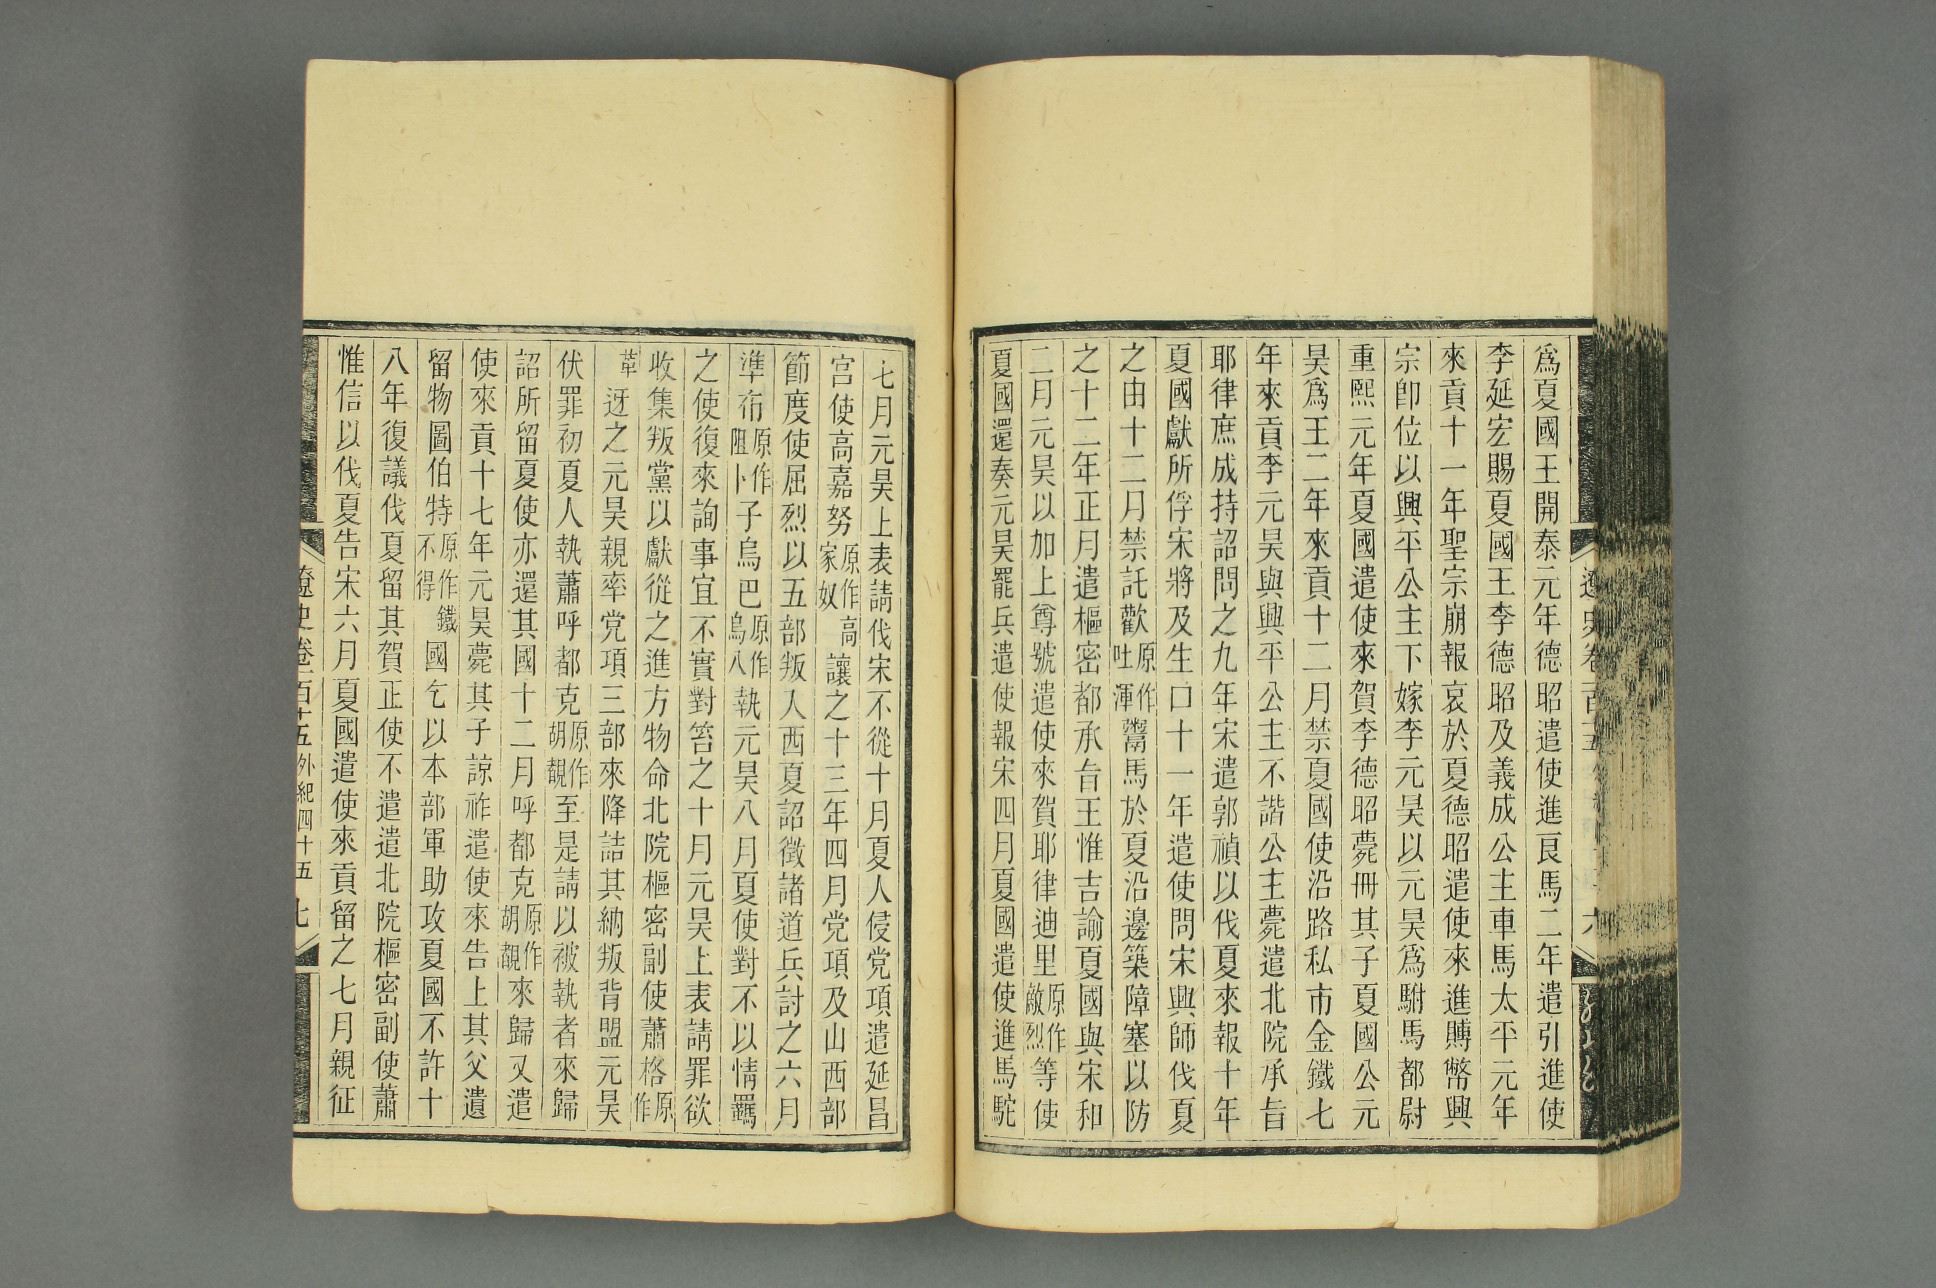 爲夏國王開泰元年德昭遣使進良馬二年遣引進使
李延宏賜夏國王李德昭及義成公主車馬太平元年
來貢十一年聖宗崩報哀於夏德昭遣使來進賻幣興
宗卽位以興平公主下嫁李元昊以元昊爲駙馬都尉
重熙元年夏國遣使來賀李德昭薨冊其子夏國公元
昊爲王二年來貢十二月禁夏國使沿路私市金鐵七
年來貢李元昊與興平公主不諧公主薨遣北院承旨
耶律庶成持詔問之九年宋遣郭禎以伐夏來報十年
夏國獻所俘宋將及生口十一年遣使問宋興師伐夏
之由十二月禁託歡原作吐渾鬻馬於夏沿邊築障塞以防
之十二年正月遣樞密都承旨王惟吉諭夏國與宋和
二月元昊以加上尊號遣使來賀耶律迪里原作敵烈等使
夏國還奏元昊罷兵遣使報宋四月夏國遣使進馬駝
七月元昊上表請伐宋不從十月夏人侵党項遣延昌
宮使高嘉努原作高家奴讓之十三年四月党項及山西部
節度使屈烈以五部叛人西夏詔徵諸道兵討之六月
準布原作阻卜子烏巴原作烏八執元昊八月夏使對不以情羈
之使復來詢事宜不實對笞之十月元昊上表請罪欲
收集叛黨以獻從之進方物命北院樞密副使蕭格原作
革迓之元昊親率党項三部來降詰其納叛背盟元昊
伏罪初夏人執蕭呼都克原作胡覩至是請以被執者來歸
詔所留夏使亦還其國十二月呼都克原作胡覩來歸又遣
使來貢十七年元昊薨其子諒祚遣使來告上其父遺
留物圖伯特原作鐵不得國乞以本部軍助攻夏國不許十
八年復議伐夏留其賀正使不遣遣北院樞密副使蕭
惟信以伐夏告宋六月夏國遣使來貢留之七月親征
遼史卷一百十五外紀四十五 七